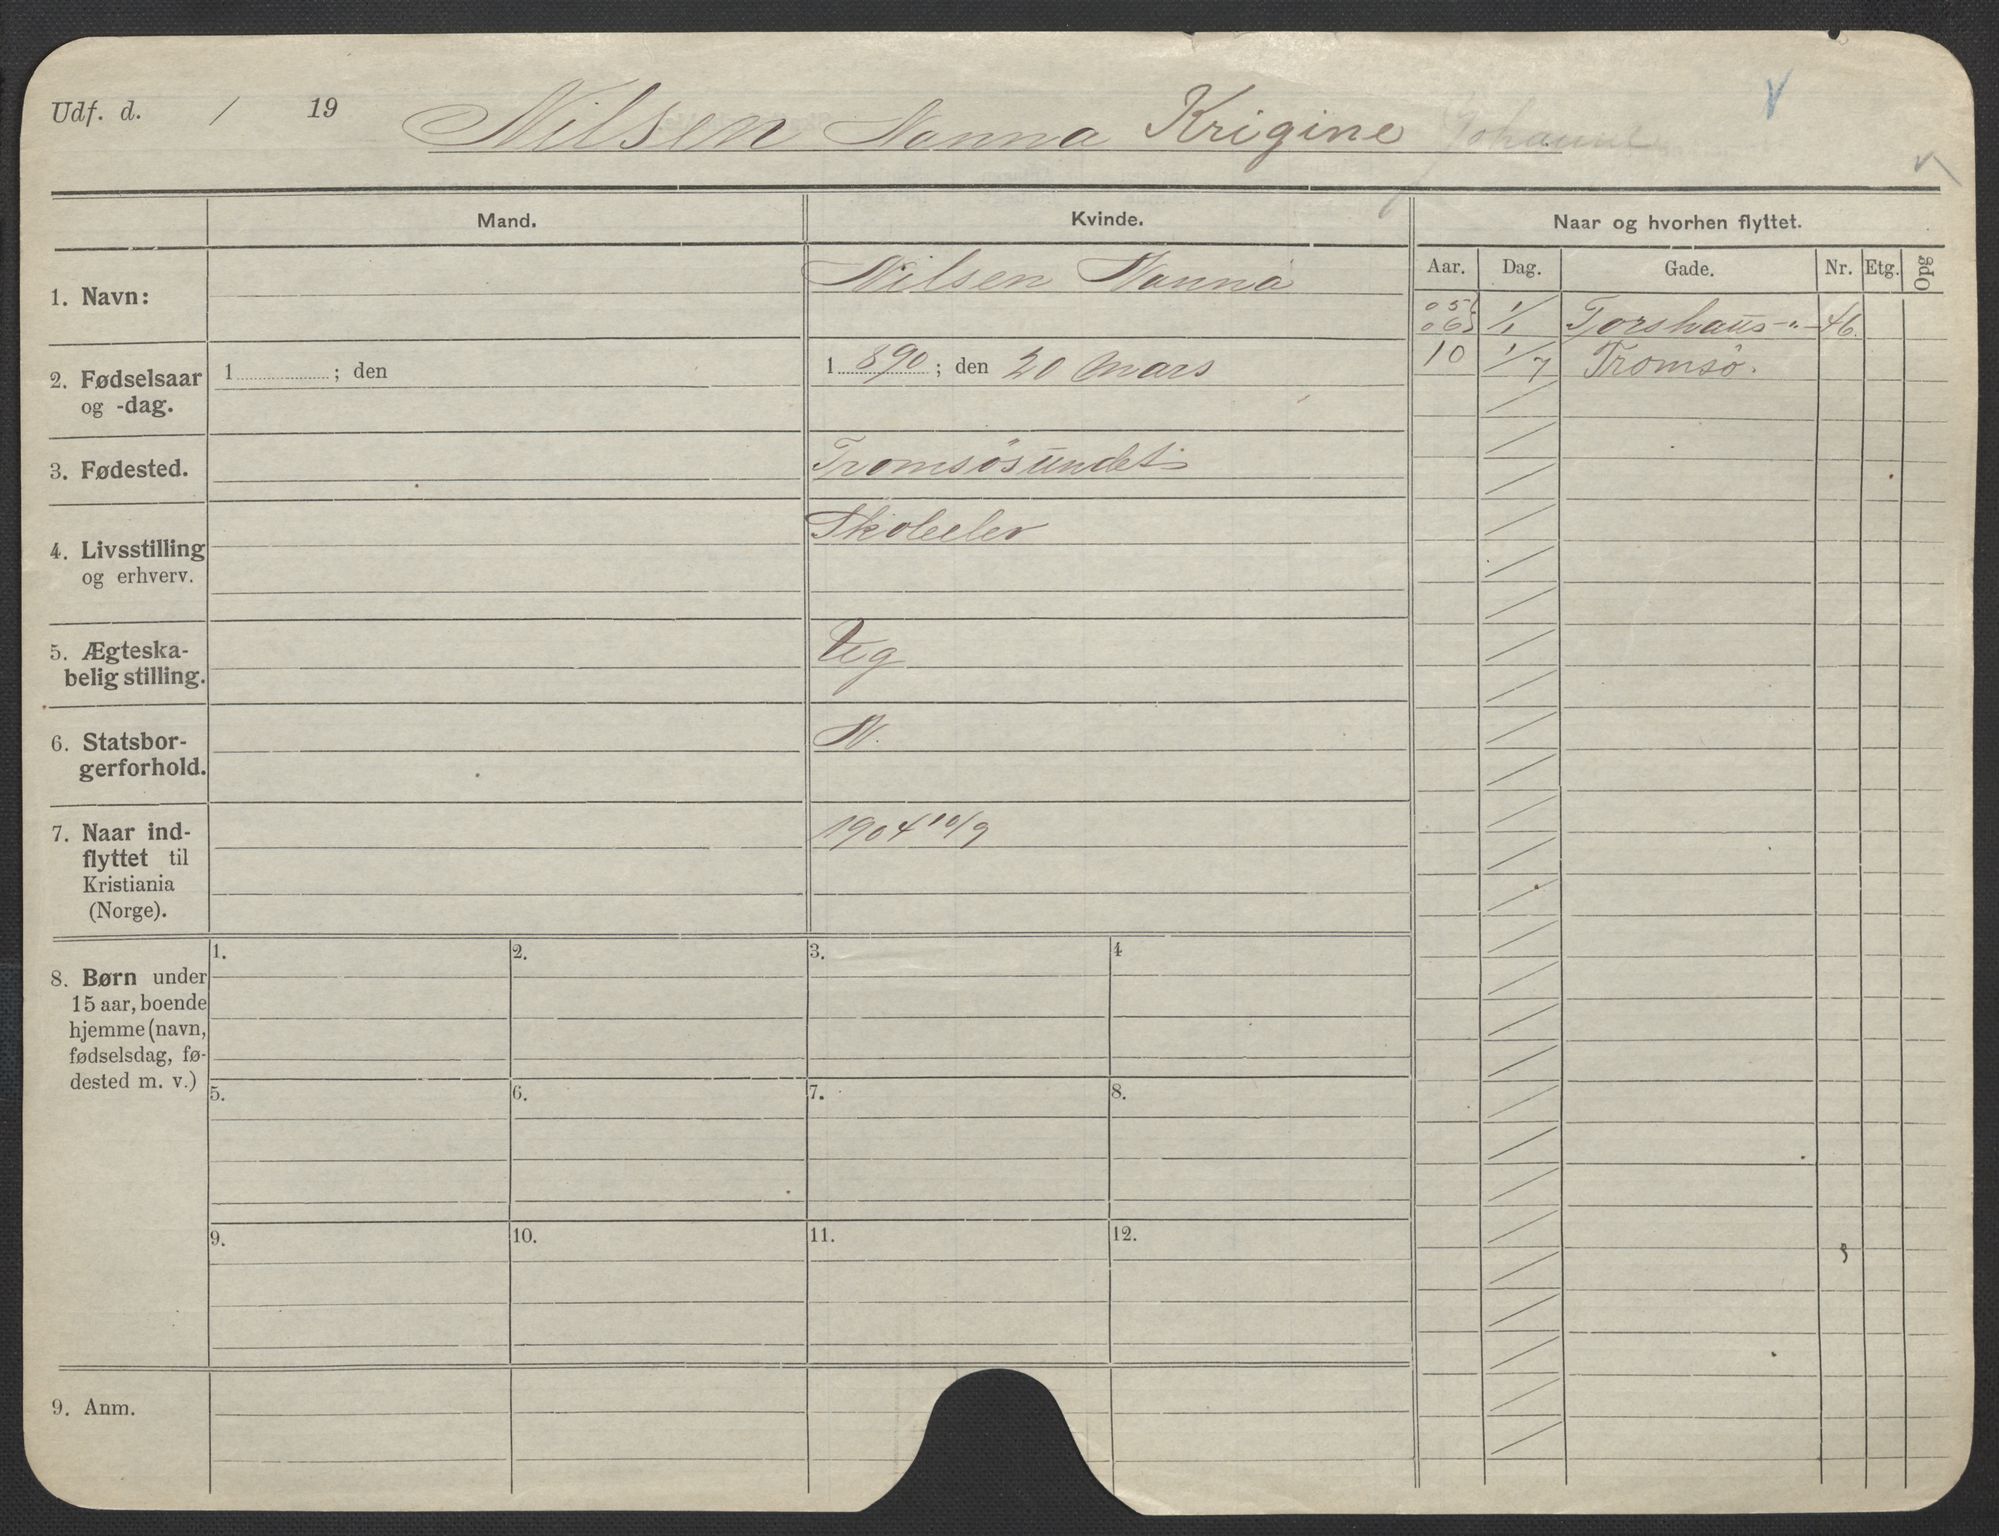 Udf. d. / 19 Nilsen Nanna Krigine Johanne
Mand. Kvinde. Naar og hvorhen flyttet.
Aar. Dag. Gade. Nr. Etg. Opg
1. Navn: Nilsen Nanna
05 06 1/1 Torshaus-"- 46.
10 1/7 Tromsø.
2. Fødselsaar
og -dag.
1 ; den
1890; den 20 mars
3. Fødested. Tromsøsundet
4. Livsstilling
og erhverv.
Skoleelev
5. Ægteska-
belig stilling.
Ug
6. Statsbor-
gerforhold.
N.
7. Naar ind-
flyttet til
Kristiania
(Norge).
1904 10/9
8. Børn under
15 aar, boende
hjemme (navn,
fødselsdag, fø-
dested m. v.)
1. 2. 3. 4
5. 6. 7. 8.
9. 10. 11. 12.
9. Anm.